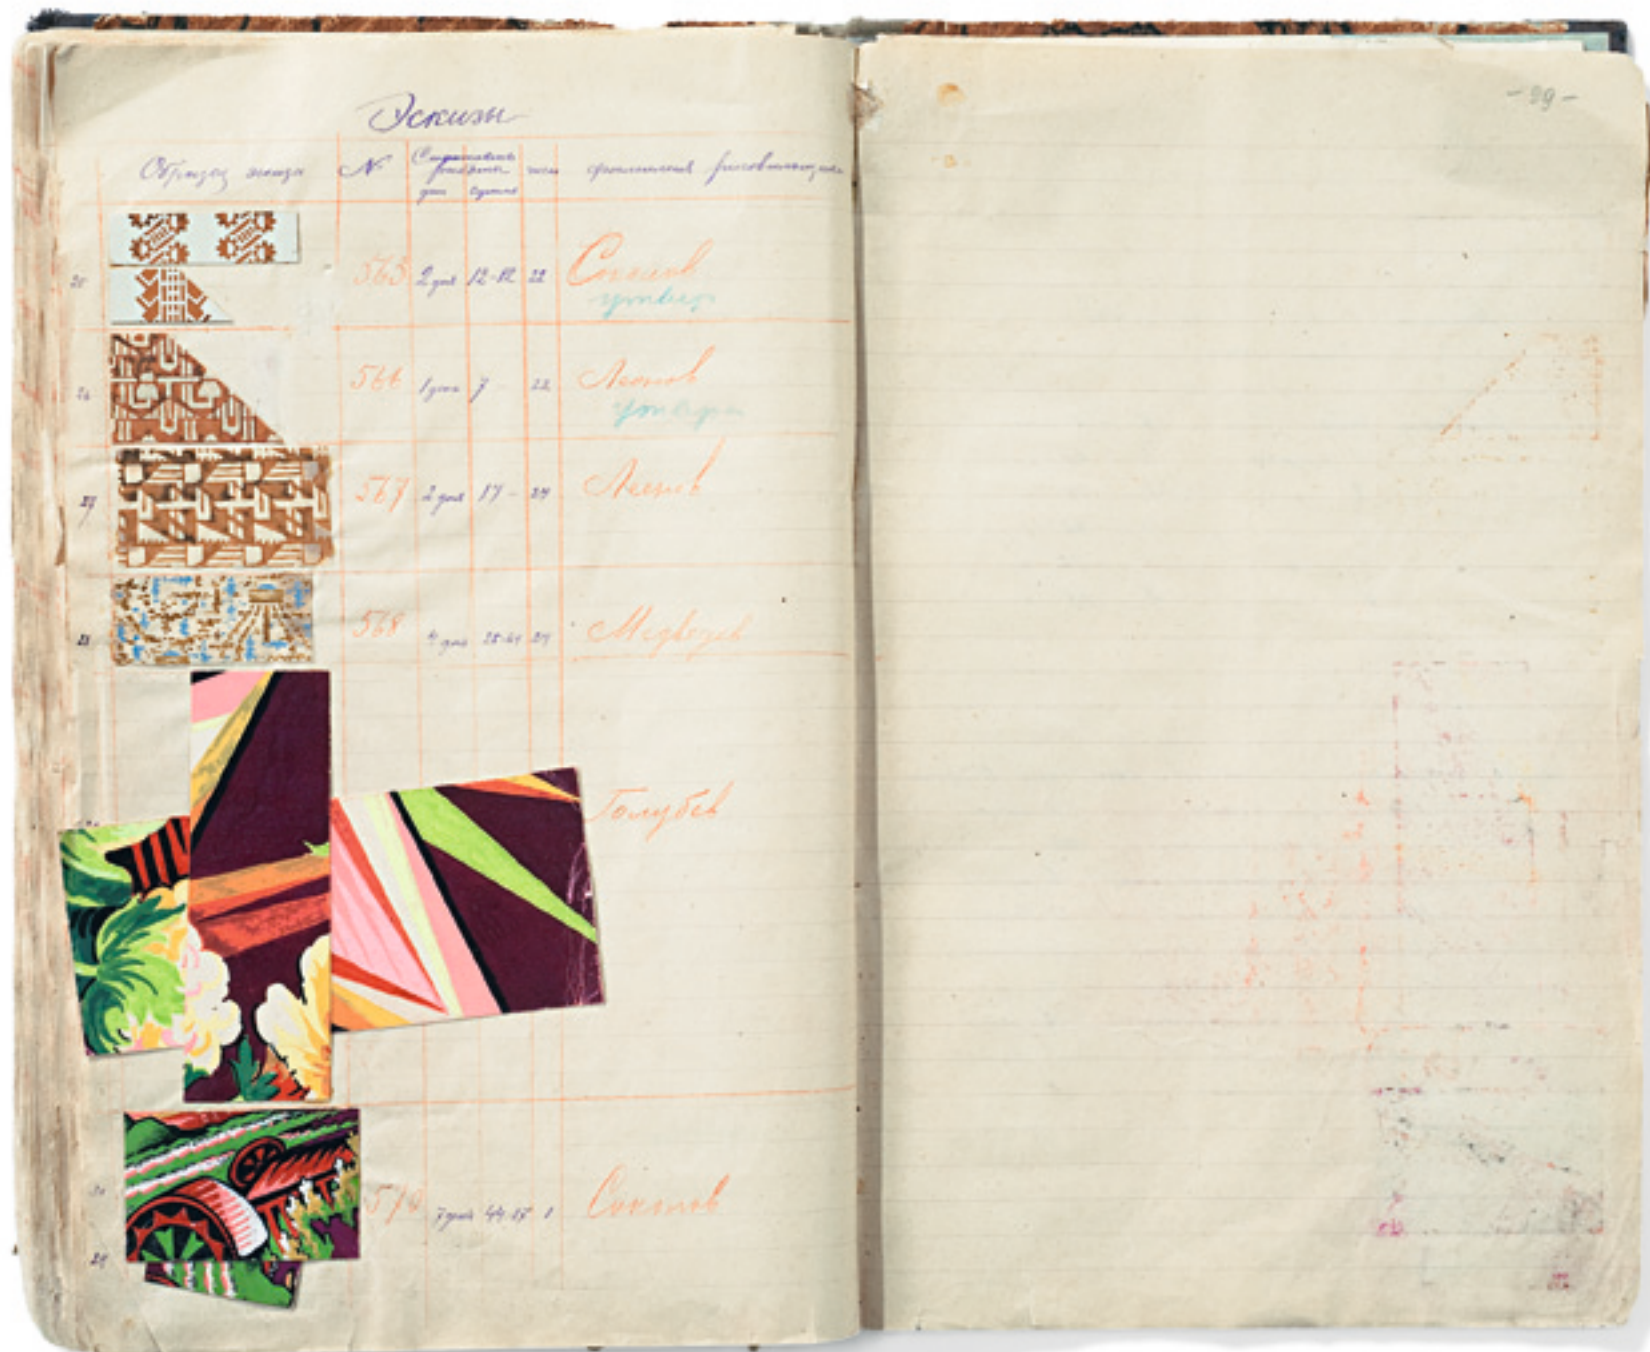 Эскизы
- 99 -
Образец эскиза № дни число фамилия рисовальщика
565 2 дня 12-12 22 Соколов
утвер
566 1 день 7 - 22 Леонов
утвержд
27 567 2 дня 17 - 24 Леонов
28 568 4 дня 24 Медведев
Голубев
570 7 дней 44-17 1 Соколов